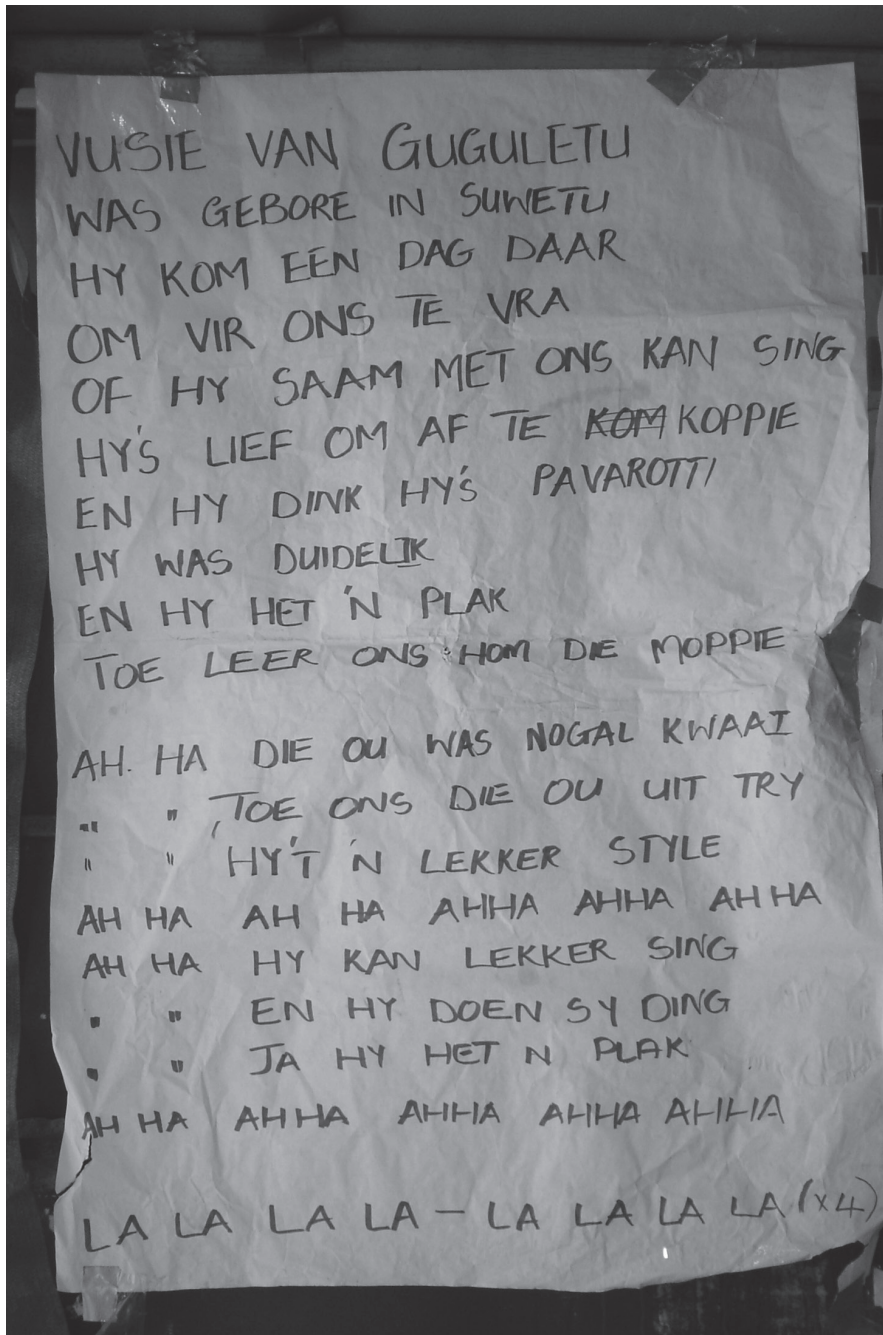 VUSIE VAN GUGULETU
WAS GEBORE IN SUWETU
HY KOM EÉN DAG DAAR
OM VIR ONS TE VRA
OF HY SAAM MET ONS KAN SING
HY'S LIEF OM AF TE KOM KOPPIE
EN HY DINK HY'S PAVAROTTI
HY WAS DUIDELIK
EN HY HET 'N PLAK
TOE LEER ONS HOM DIE MOPPIE
AH. HA DIE OU WAS NOGAL KWAAI
" " TOE ONS DIE OU UIT TRY
" " HY'T 'N LEKKER STYLE
AH HA AH HA AHHA AHHA AH HA
AH HA HY KAN LEKKER SING
" " EN HY DOEN SY DING
" " JA HY HET N PLAK
AH HA AHHA AHHA AHHA AHHA
LA LA LA LA - LA LA LA LA (x4)